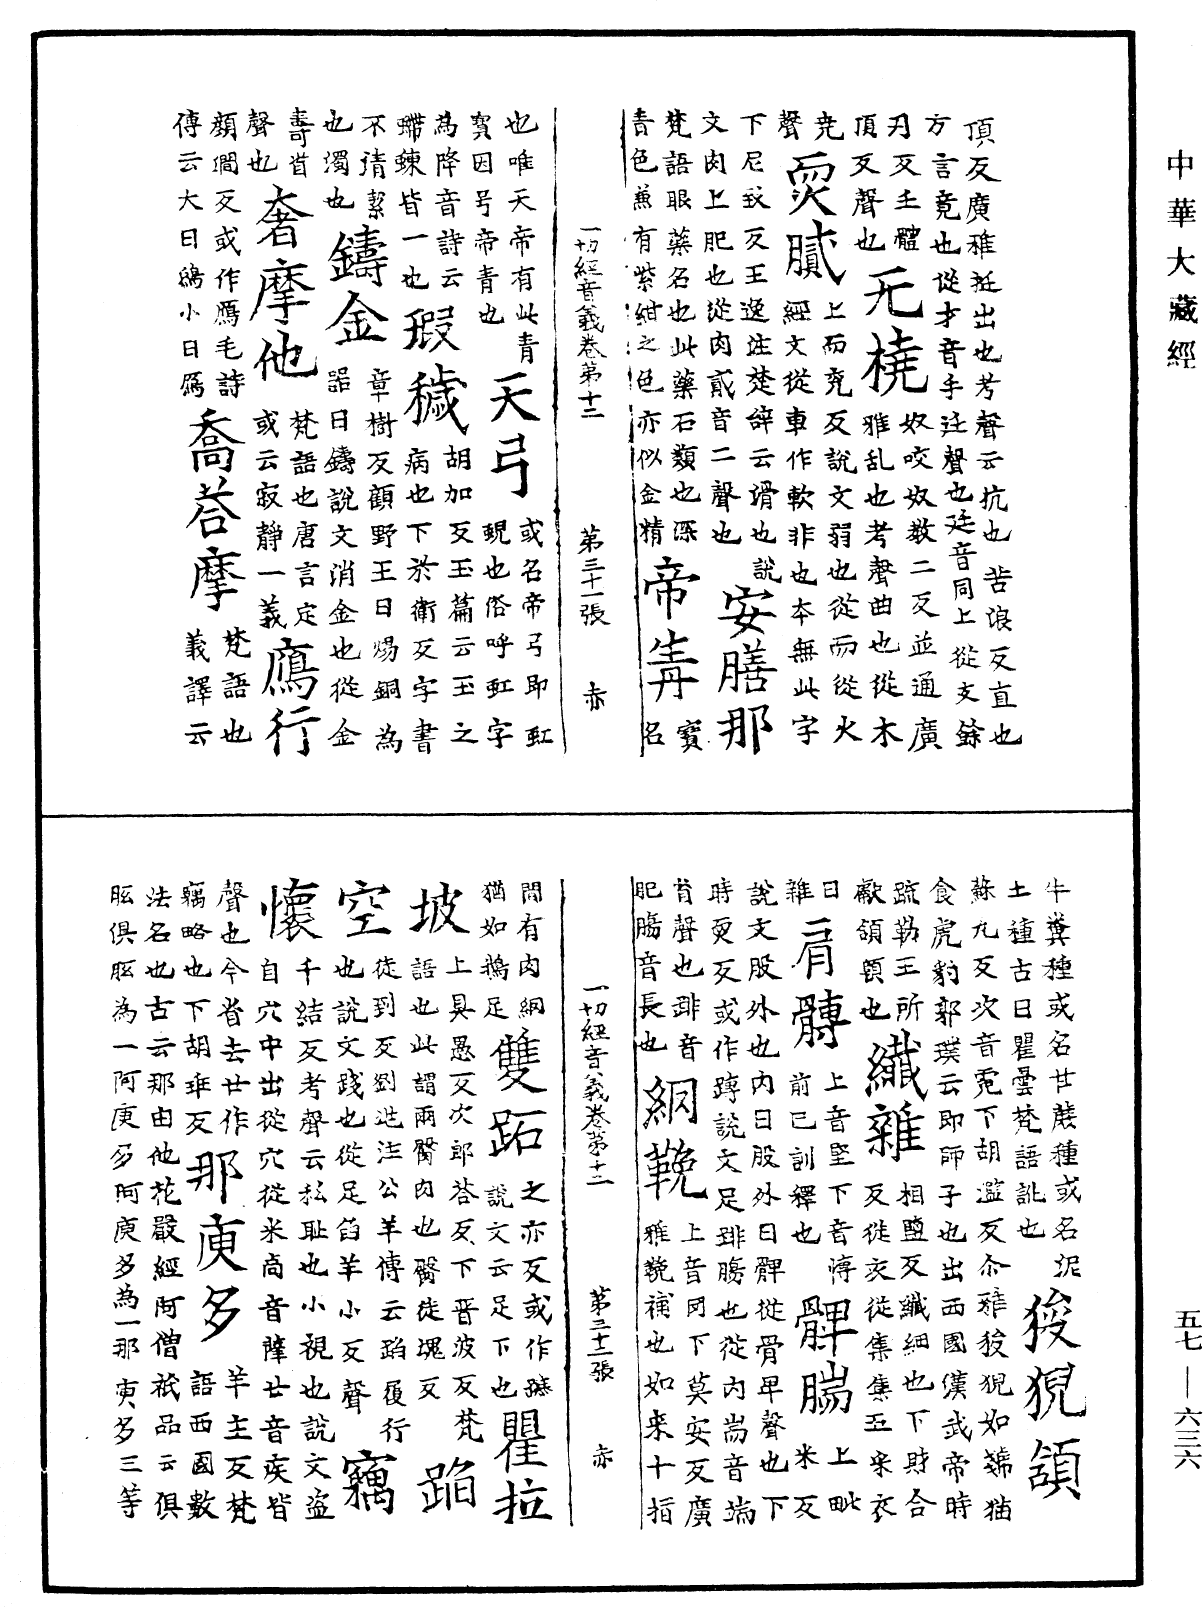 中華大藏經
頂反廣雅挺出也考聲云抗也苦浪反直也
方言竟也從才音手廷聲也廷音同上從攴餘
刃反壬體
頂反聲也
无橈
奴咬奴教二反並通廣
雅乱也考聲曲也從木
尭
聲
耎膩
上而兖反說文弱也從而從火
經文從車作軟非也本無此字
下尼致反王逸注楚辞云滑也說
文肉上肥也從肉貳音二聲也
安膳那
梵語眼藥名也此藥石類也深
青色兼有紫紺之色亦似金精
帝青
寶
名
一切經音義卷第十二 第三十一張 赤
也唯天帝有此青
寶因号帝青也
天弓
或名帝弓即虹
蜺也俗呼虹字
為降音詩云
蝃蝀皆一也
瑕穢
胡加反玉篇云玉之
病也下於衛反字書
不清絜
也濁也
鑄金
章樹反顧野王曰煬銅為
器曰鑄說文消金也從金
壽省
聲也
奢摩他
梵語也唐言定
或云寂靜一義
鴈行
顔澗反或作鴈毛詩
傳云大曰鴻小曰鴈
喬荅摩
梵語也
義譯云
牛糞種或名甘蔗種或名泥
土種古曰瞿曇梵語訛也
狻猊頷
蘇九反次音霓下胡濫反尒雅狻猊如虥猫
食虎豹郭璞云即師子也出西國漢武帝時
疏勒王所
獻頷頤也
纖雜
相鹽反纖細也下財合
反從衣從集集五采衣
曰
雜
二肩髆
上音堅下音博
前已訓釋也
髀腨
上毗
米反下
說文股外也内曰股外曰髀從骨卑聲也下
時耎反或作蹲說文足跰腸也從肉耑音端
省聲也跰音
肥腸音長也
網鞔
上音罔下莫安反廣
雅鞔補也如来十指
一切經音義卷第十二 第三十二張 赤
間有肉網
猶如鵝足
雙跖
之亦反或作蹠
說文云足下也
瞿拉
坡
上具愚反次郎荅反下晋波反梵
語也此謂兩臀肉也臀徒魂反
蹈
空
徒到反劉兆注公羊傳云蹈履行
也說文踐也從足舀羊小反聲
竊
懷
千結反考聲云私耻也小視也說文盗
自穴中出從穴從米卨音薛廿音疾皆
聲也今省去廿作
竊略也下胡乖反
那庾多
羊主反梵
語西國數
法名也古云那由他花嚴經阿僧祇品云俱
胝俱胝為一阿庾多阿庾多為一那庾多三等
五七—六三六